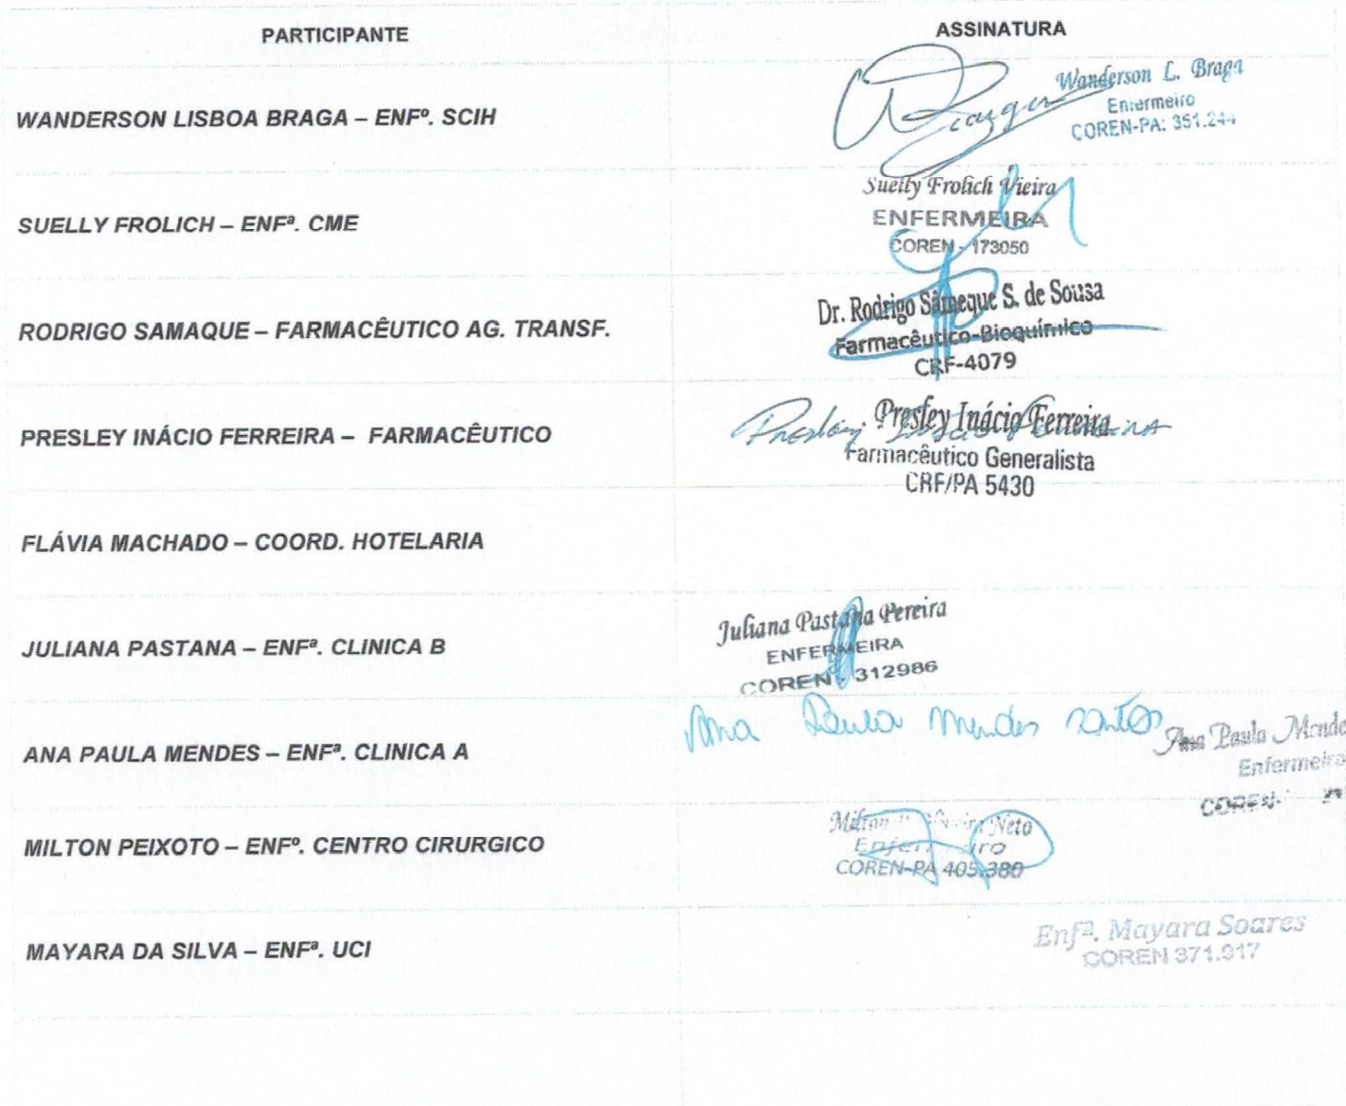 PARTICIPANTE
ASSINATURA
WANDERSON LISBOA BRAGA – ENFº. SCIH
Braga
Wanderson L. Braga
Enfermeiro
COREN-PA: 351.244
SUELLY FROLICH – ENFª. CME
Suelly Frolich Vieira
ENFERMEIRA
COREN - 173050
RODRIGO SAMAQUE – FARMACÊUTICO AG. TRANSF.
Dr. Rodrigo Sameque S. de Sousa
Farmacêutico-Bioquímico
CRF-4079
PRESLEY INÁCIO FERREIRA – FARMACÊUTICO
Presley Inácio Ferreira
Presley Inácio Ferreira
Farmacêutico Generalista
CRF/PA 5430
FLÁVIA MACHADO – COORD. HOTELARIA
JULIANA PASTANA – ENFª. CLINICA B
Juliana Pastana Pereira
ENFERMEIRA
COREN - 312986
ANA PAULA MENDES – ENFª. CLINICA A
Ana Paula Mendes Santos
Ana Paula Mende
Enfermeira
COREN
MILTON PEIXOTO – ENFº. CENTRO CIRURGICO
Milton Neto
Enfermeiro
COREN-PA 405.380
MAYARA DA SILVA – ENFª. UCI
Enfª. Mayara Soares
COREN 371.917